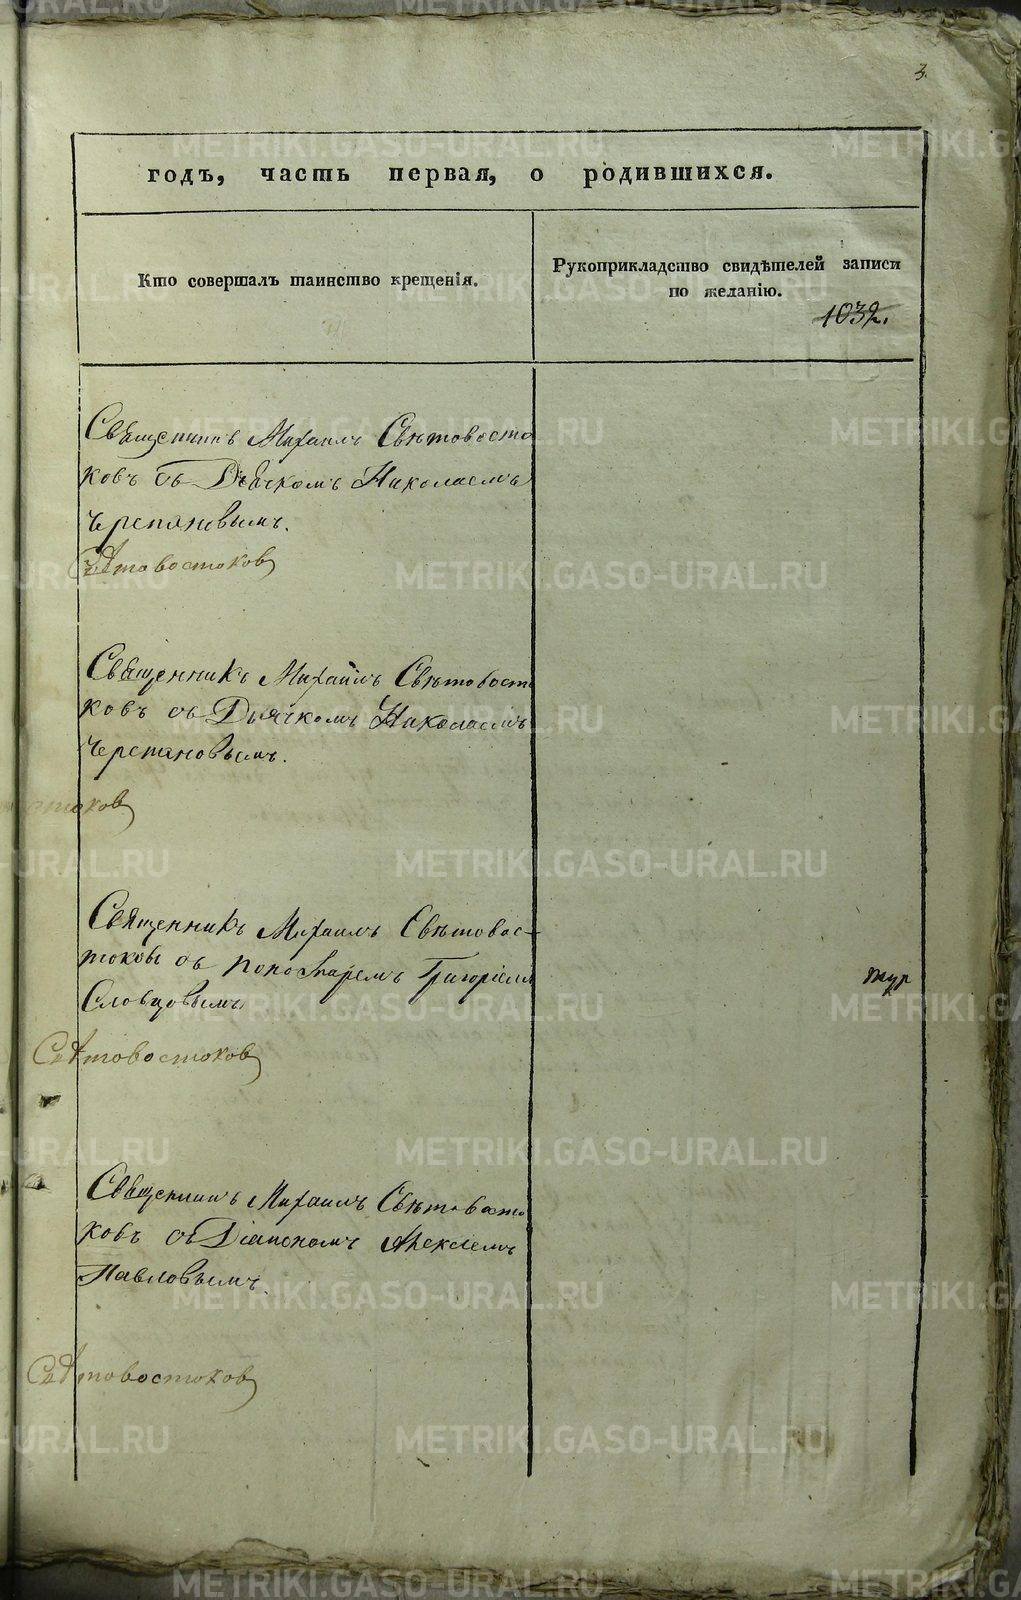 3.
годъ, часть первая, о родившихся.
Кто совершалъ таинство крещенія.
Рукоприкладство свидѣтелей записи
по желанію.
1032.
Священникъ Михаилъ Свѣтовосто
ковъ съ Дьячкомъ Николаемъ
Черепановымъ.
Свѣтовостоков
Священникъ Михаилъ Свѣтовосто
ковъ съ Дьячкомъ Николаемъ
Черепановымъ.
стоков
Священникъ Михаилъ Свѣтовос-
токовъ съ Понамаремъ Григоріемъ
Словцовымъ
Свѣтовостоков
Священникъ Михаилъ Свѣтовосто
ковъ съ Діакономъ Алексѣемъ
Павловымъ.
Свѣтовостоков
METRIKI.GASO-URAL.RU